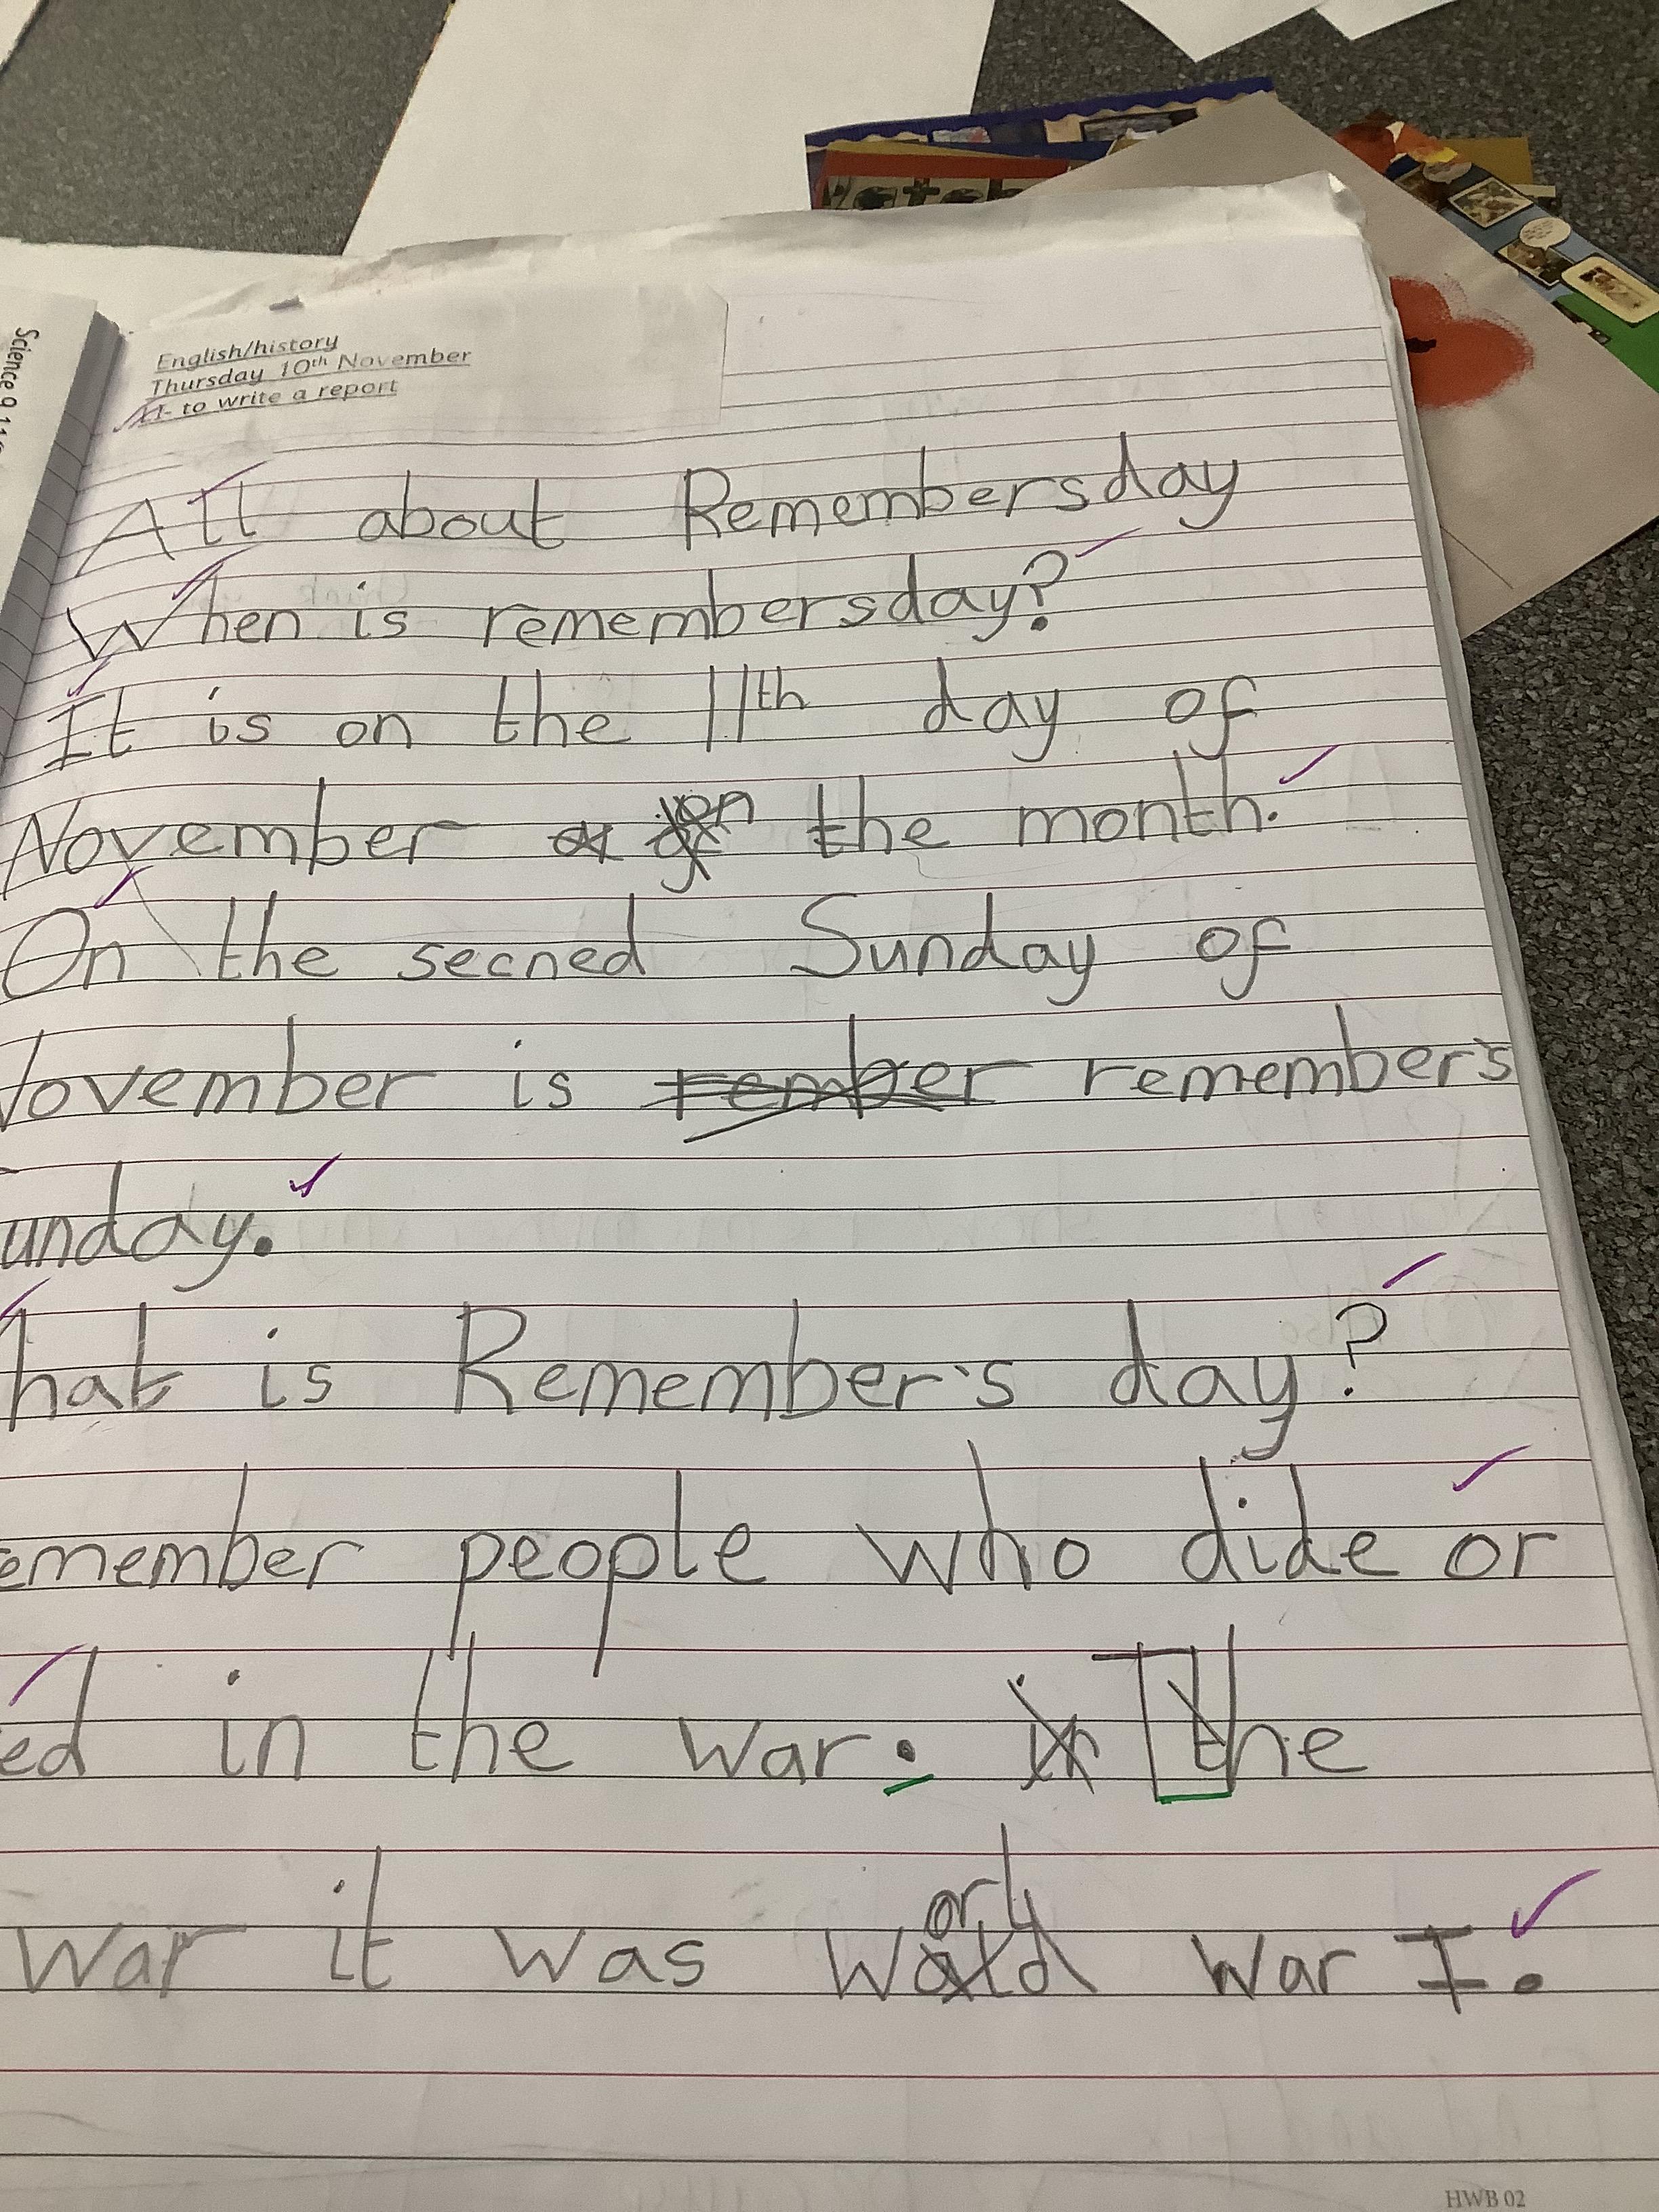 English/history
Thursday 10th November
LI- to write a report
All about Remembersday
When is remembersday?
It is on the 11th day of
November on the month.
On the secned Sunday of
November is rember remember's
unday.
hat is Remember's day?
emember people who dide or
ed in the war. in the
war it was world war I.
HWB 02